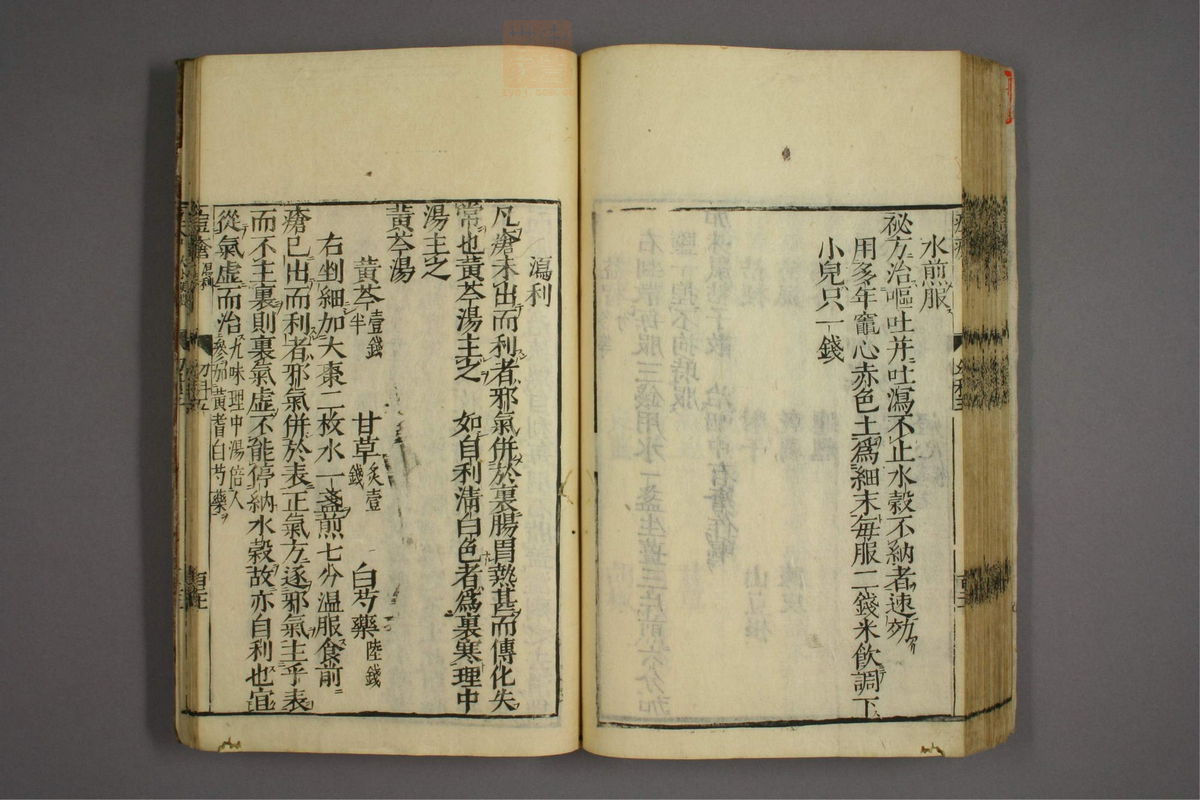 水煎服
祕方治嘔吐并吐瀉不止水穀不納者速効
用多年竈心赤色土爲細末每服二錢米飮調下
小兒只一錢
瀉利
凡瘡未出而利者邪氣併於裏腸胃熱甚而傳化失
常也黃芩湯主之 如自利淸白色者爲裏寒理中
湯主之
黃芩湯
黃芩壹錢半 甘草炙壹錢 白芍藥陸錢
右剉細加大棗二枚水一盞煎七分溫服食前
瘡已出而利者邪氣併於表正氣方逐邪氣主乎表
而不主裏則裏氣虛不能停納水穀故亦自利也宜
從氣虛而治九味理中湯倍人參加黃耆白芍藥
痘瘡